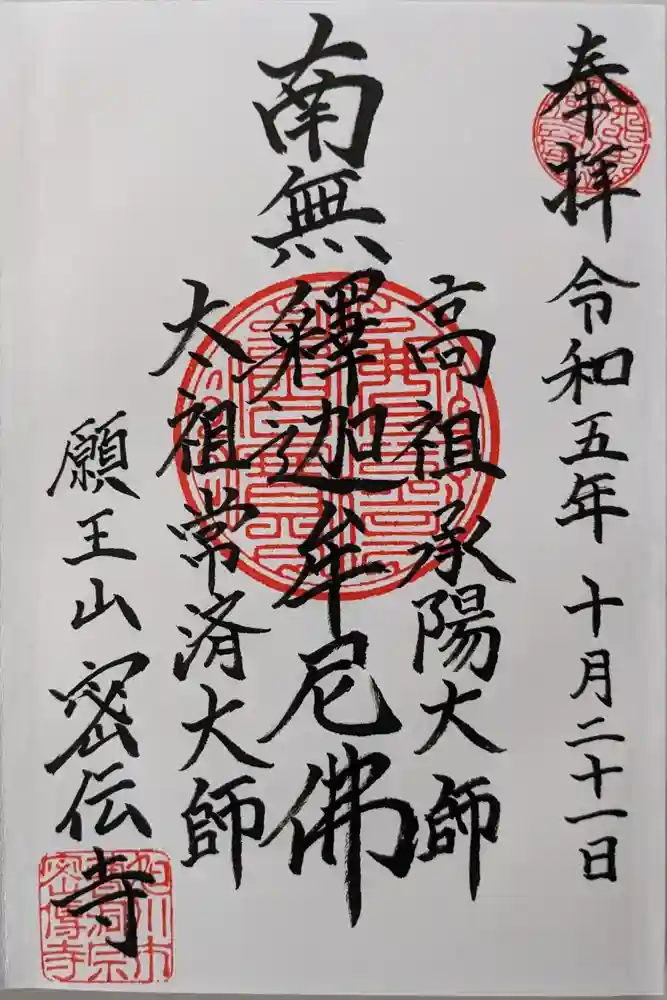 奉拝 令和五年 十月二十一日
高祖承陽大師
南無釋迦牟尼佛
太祖常済大師
願王山 密伝寺
白川市
曹洞宗
密傳寺